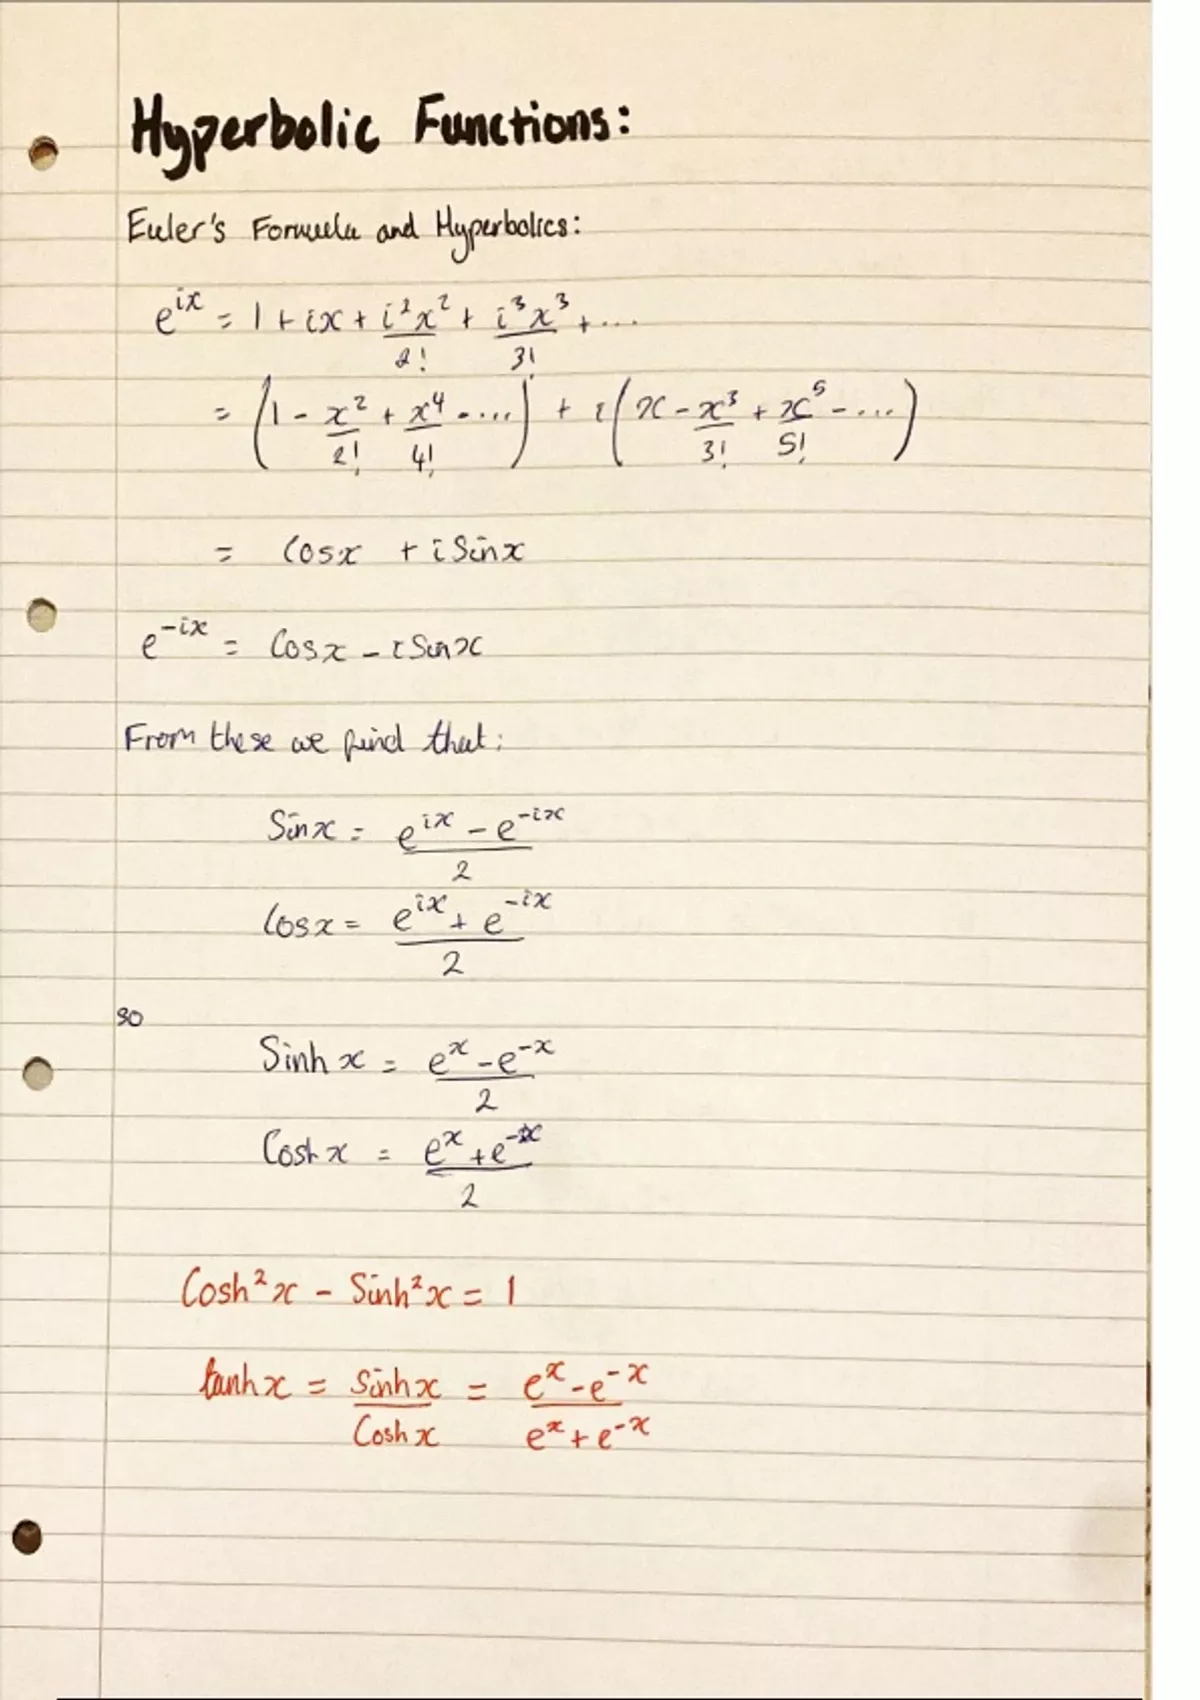 Hyperbolic Functions:
Euler's Formula and Hyperbolics:
e^{ix} = 1 + ix + \frac{i^2x^2}{2!} + \frac{i^3x^3}{3!} + ...
= (1 - \frac{x^2}{2!} + \frac{x^4}{4!} - ....) + i(x - \frac{x^3}{3!} + \frac{x^5}{5!} - ....)
= Cosx + iSinx
e^{-ix} = Cosx - iSinx
From these we find that:
Sinx = \frac{e^{ix} - e^{-ix}}{2}
Cosx = \frac{e^{ix} + e^{-ix}}{2}
so
Sinhx = \frac{e^x - e^{-x}}{2}
Coshx = \frac{e^x + e^{-x}}{2}
Cosh²x - Sinh²x = 1
tanhx = \frac{Sinhx}{Coshx} = \frac{e^x - e^{-x}}{e^x + e^{-x}}